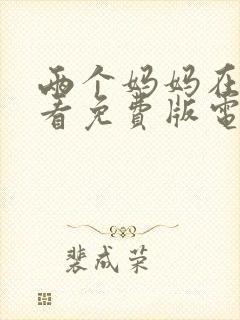 两个妈妈在
看免费版电
裴成荣